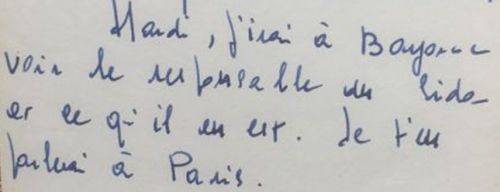 Mardi, j'irai à Bayonne
voir le responsable du
et ce qu'il en est. Je t'en
parlerai à Paris.